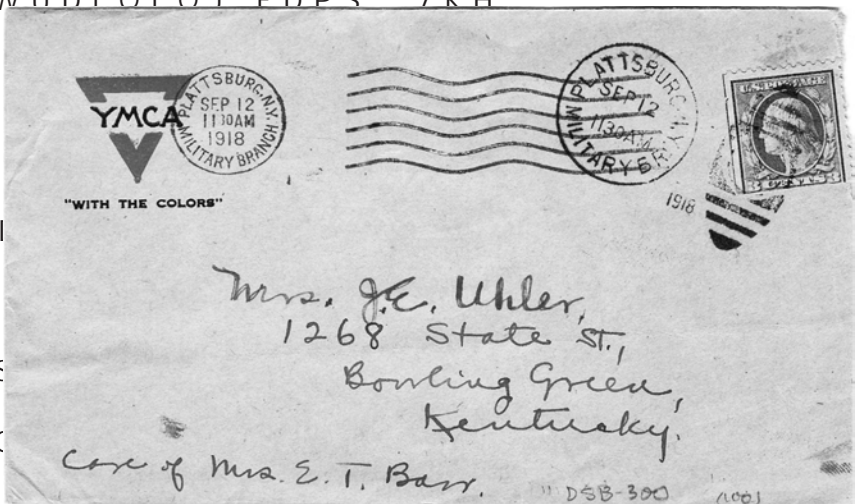 YMCA
"WITH THE COLORS"
PLATTSBURG, N.Y.
SEP 12
11 30 AM
1918
MILITARY BRANCH
PLATTSBURG, N.Y.
SEP 12
11 30 AM
MILITARY BR.
1918
U.S. POSTAGE
3 CENTS 3
Mrs. J.E. Uhler,
1268 State St.,
Bowling Green,
Kentucky.
Care of Mrs. E. T. Barr.
DSB-300